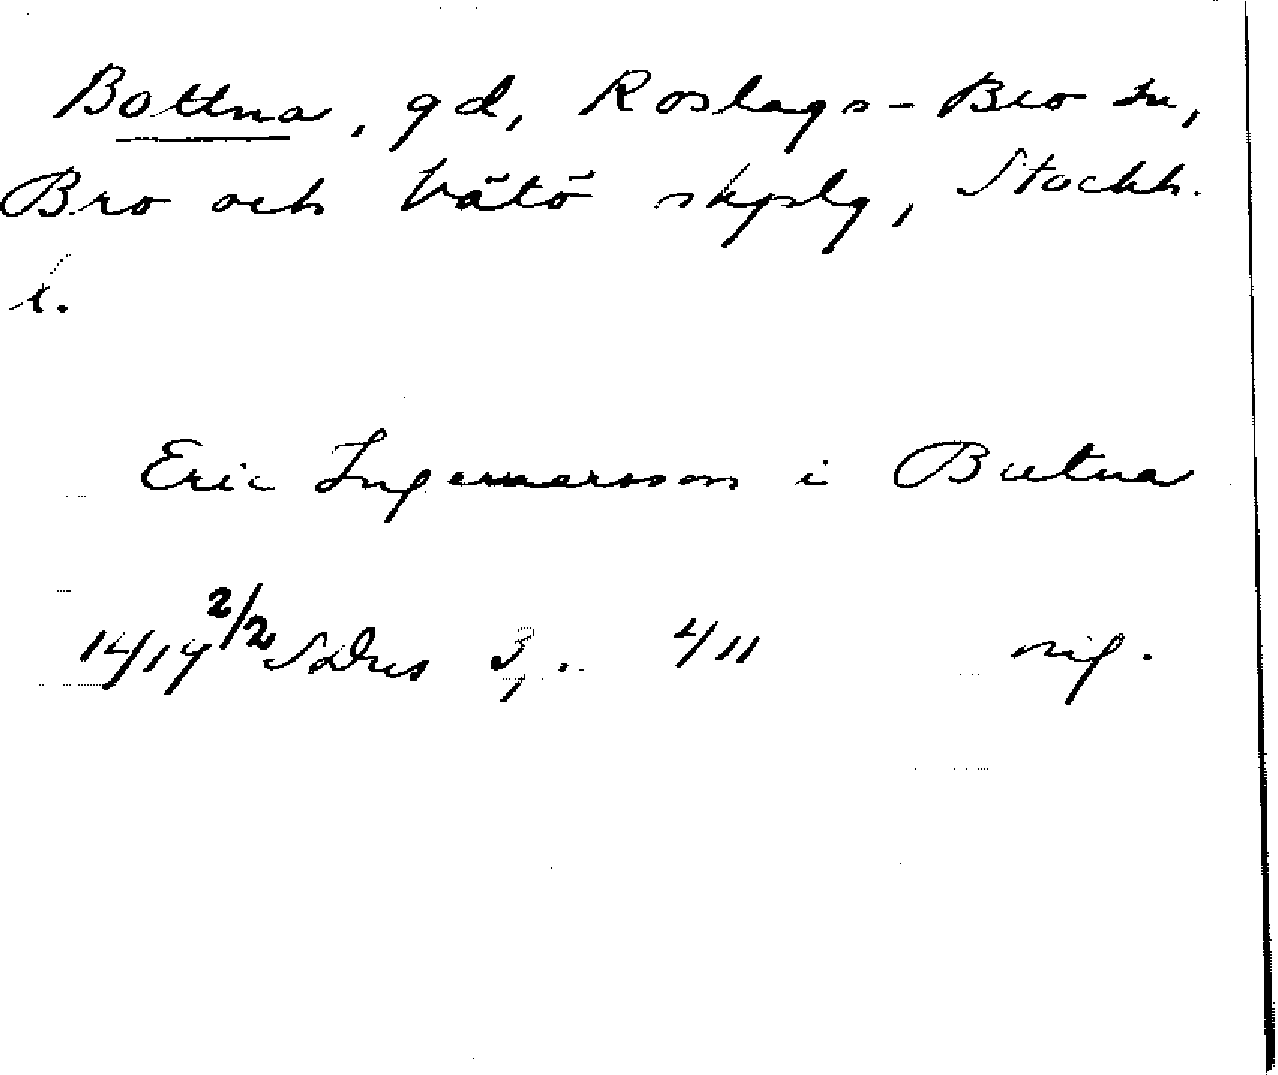 Bottna, gd, Roslags-Bro sn,
Bro och Vätö skplg, Stockh.
l.
Eric Ingemarsson i Butna
1419 2/2 SDns 3, .. 4/11 sif.